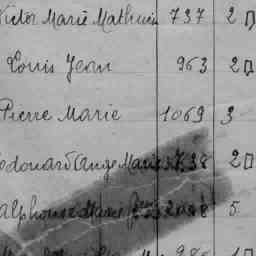 Victor Marie Mathurin 737 2
Louis Jean 963 2
Pierre Marie 1069 3
Edouard Ange Marie 738 2
Alphonse Marie 2088 5